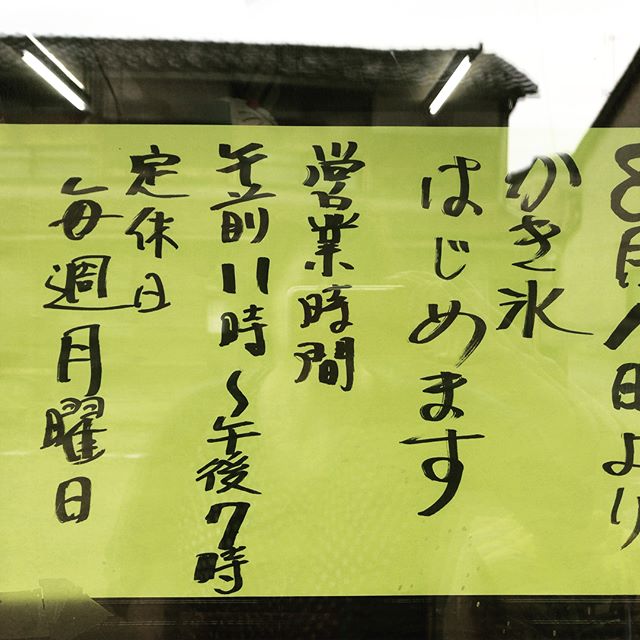 8月1日より
かき氷
はじめます
営業時間
午前11時～午後7時
定休日
毎週月曜日